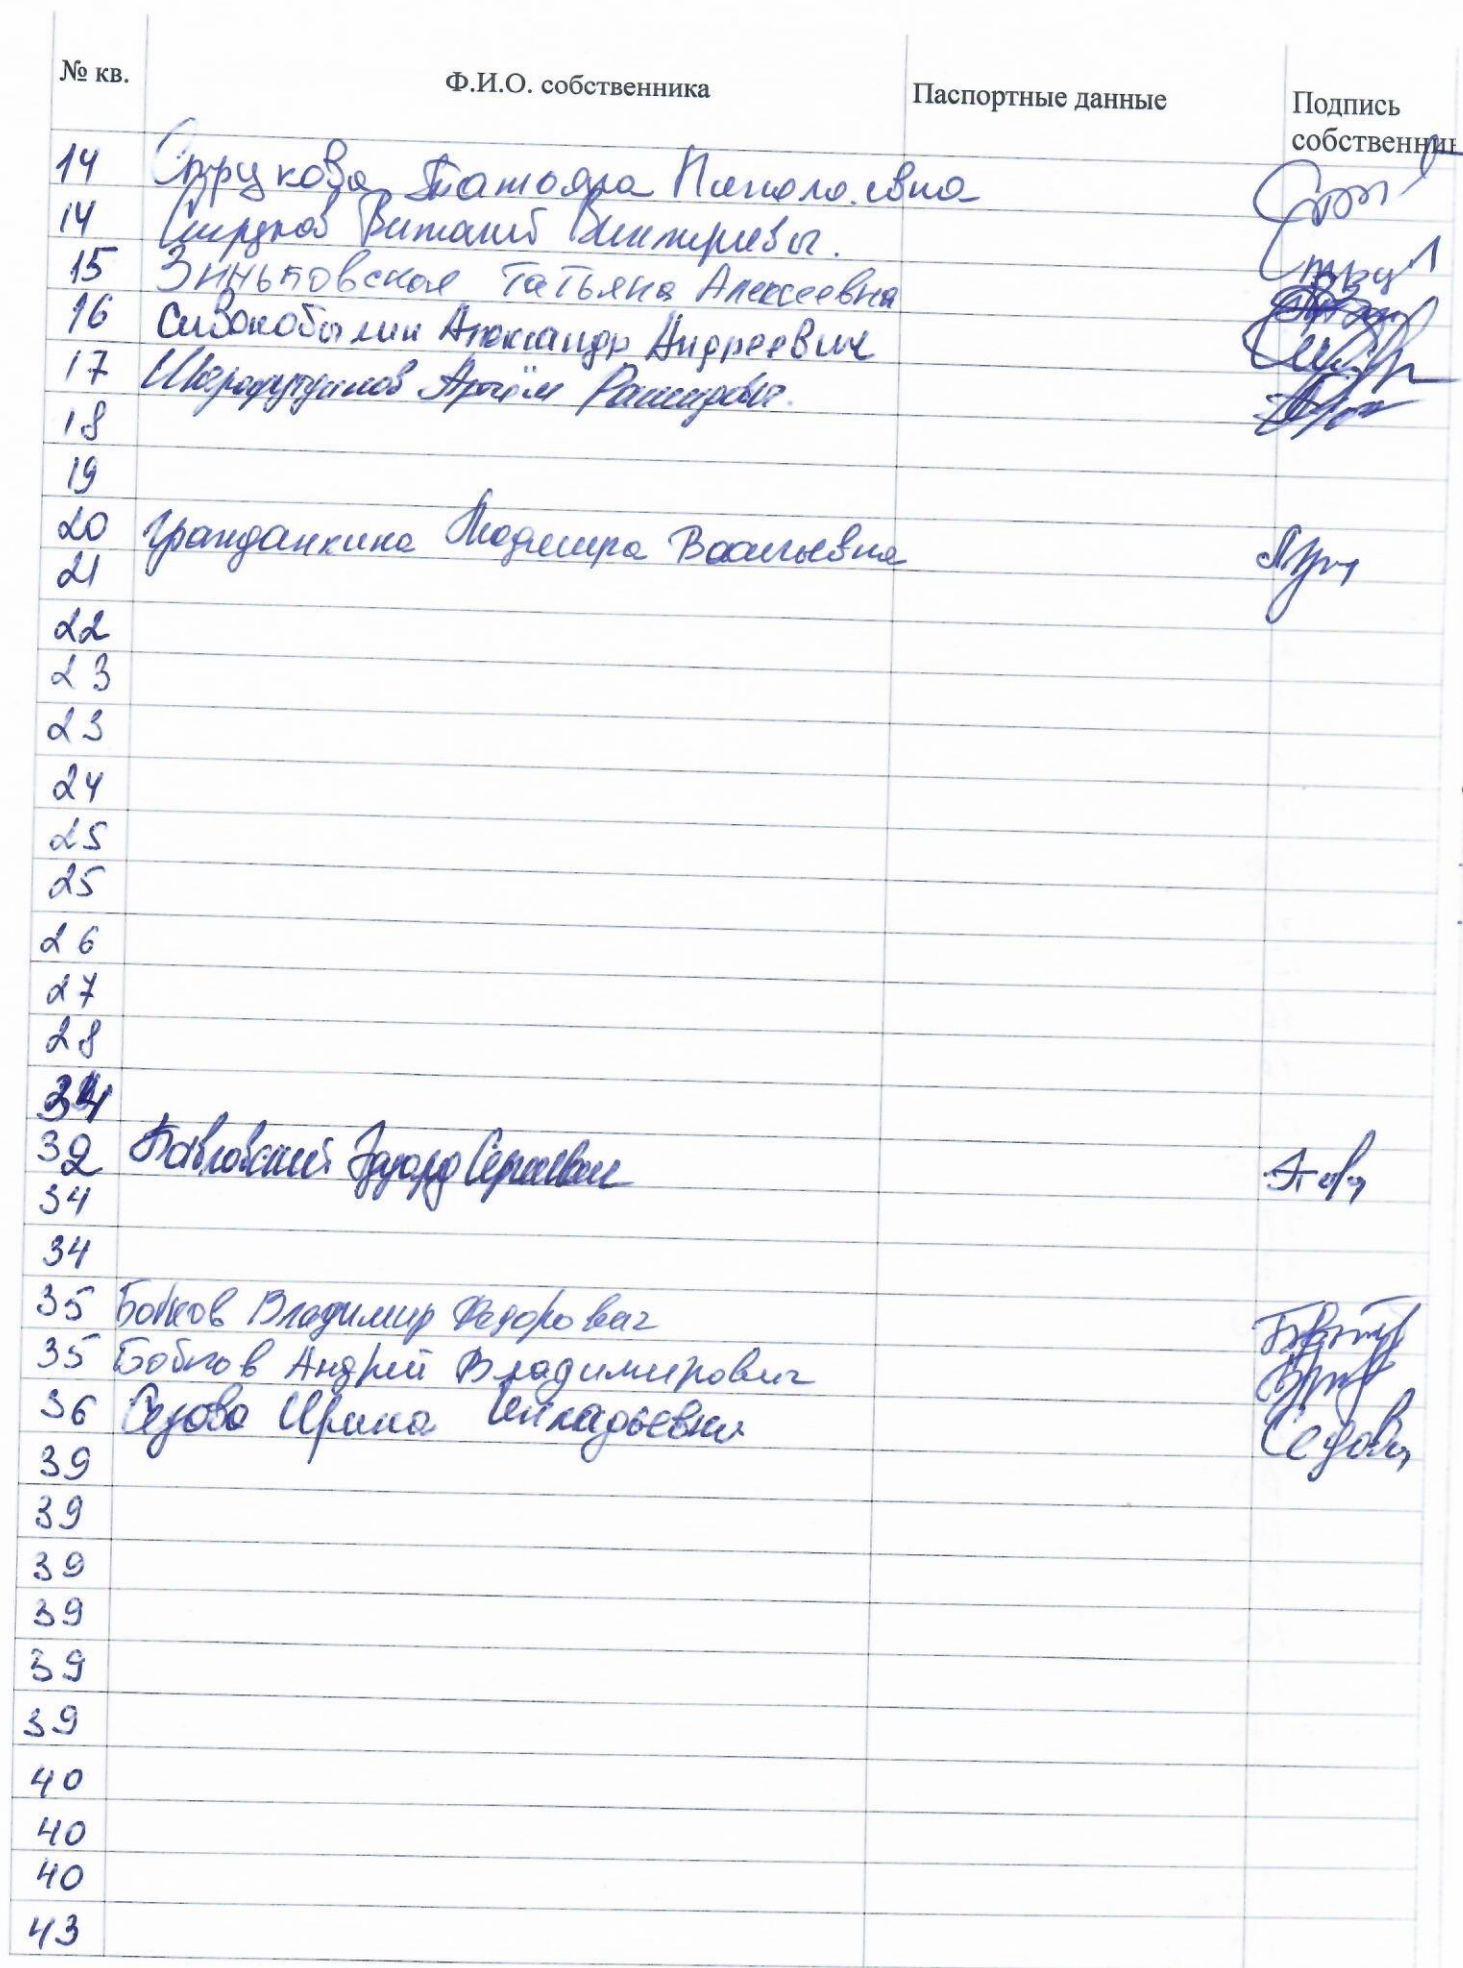 № кв. Ф.И.О. собственника Паспортные данные Подпись
собственник
14 Струкова Татьяна Николаевна
14 Струков Виталий
15 Зиньковская Татьяна Алексеевна
16 Сивокобылин Александр Андреевич
17 Артём
18
19
20 Гражданкина Васильевна
21
22
23
23
24
25
25
26
27
28
34
32 Павловский Эдуард Сергеевич
34
34
35 Бобков Владимир Федорович
35 Бобков Андрей Владимирович
36 Седова Ирина Седова
39
39
39
39
39
39
40
40
40
43